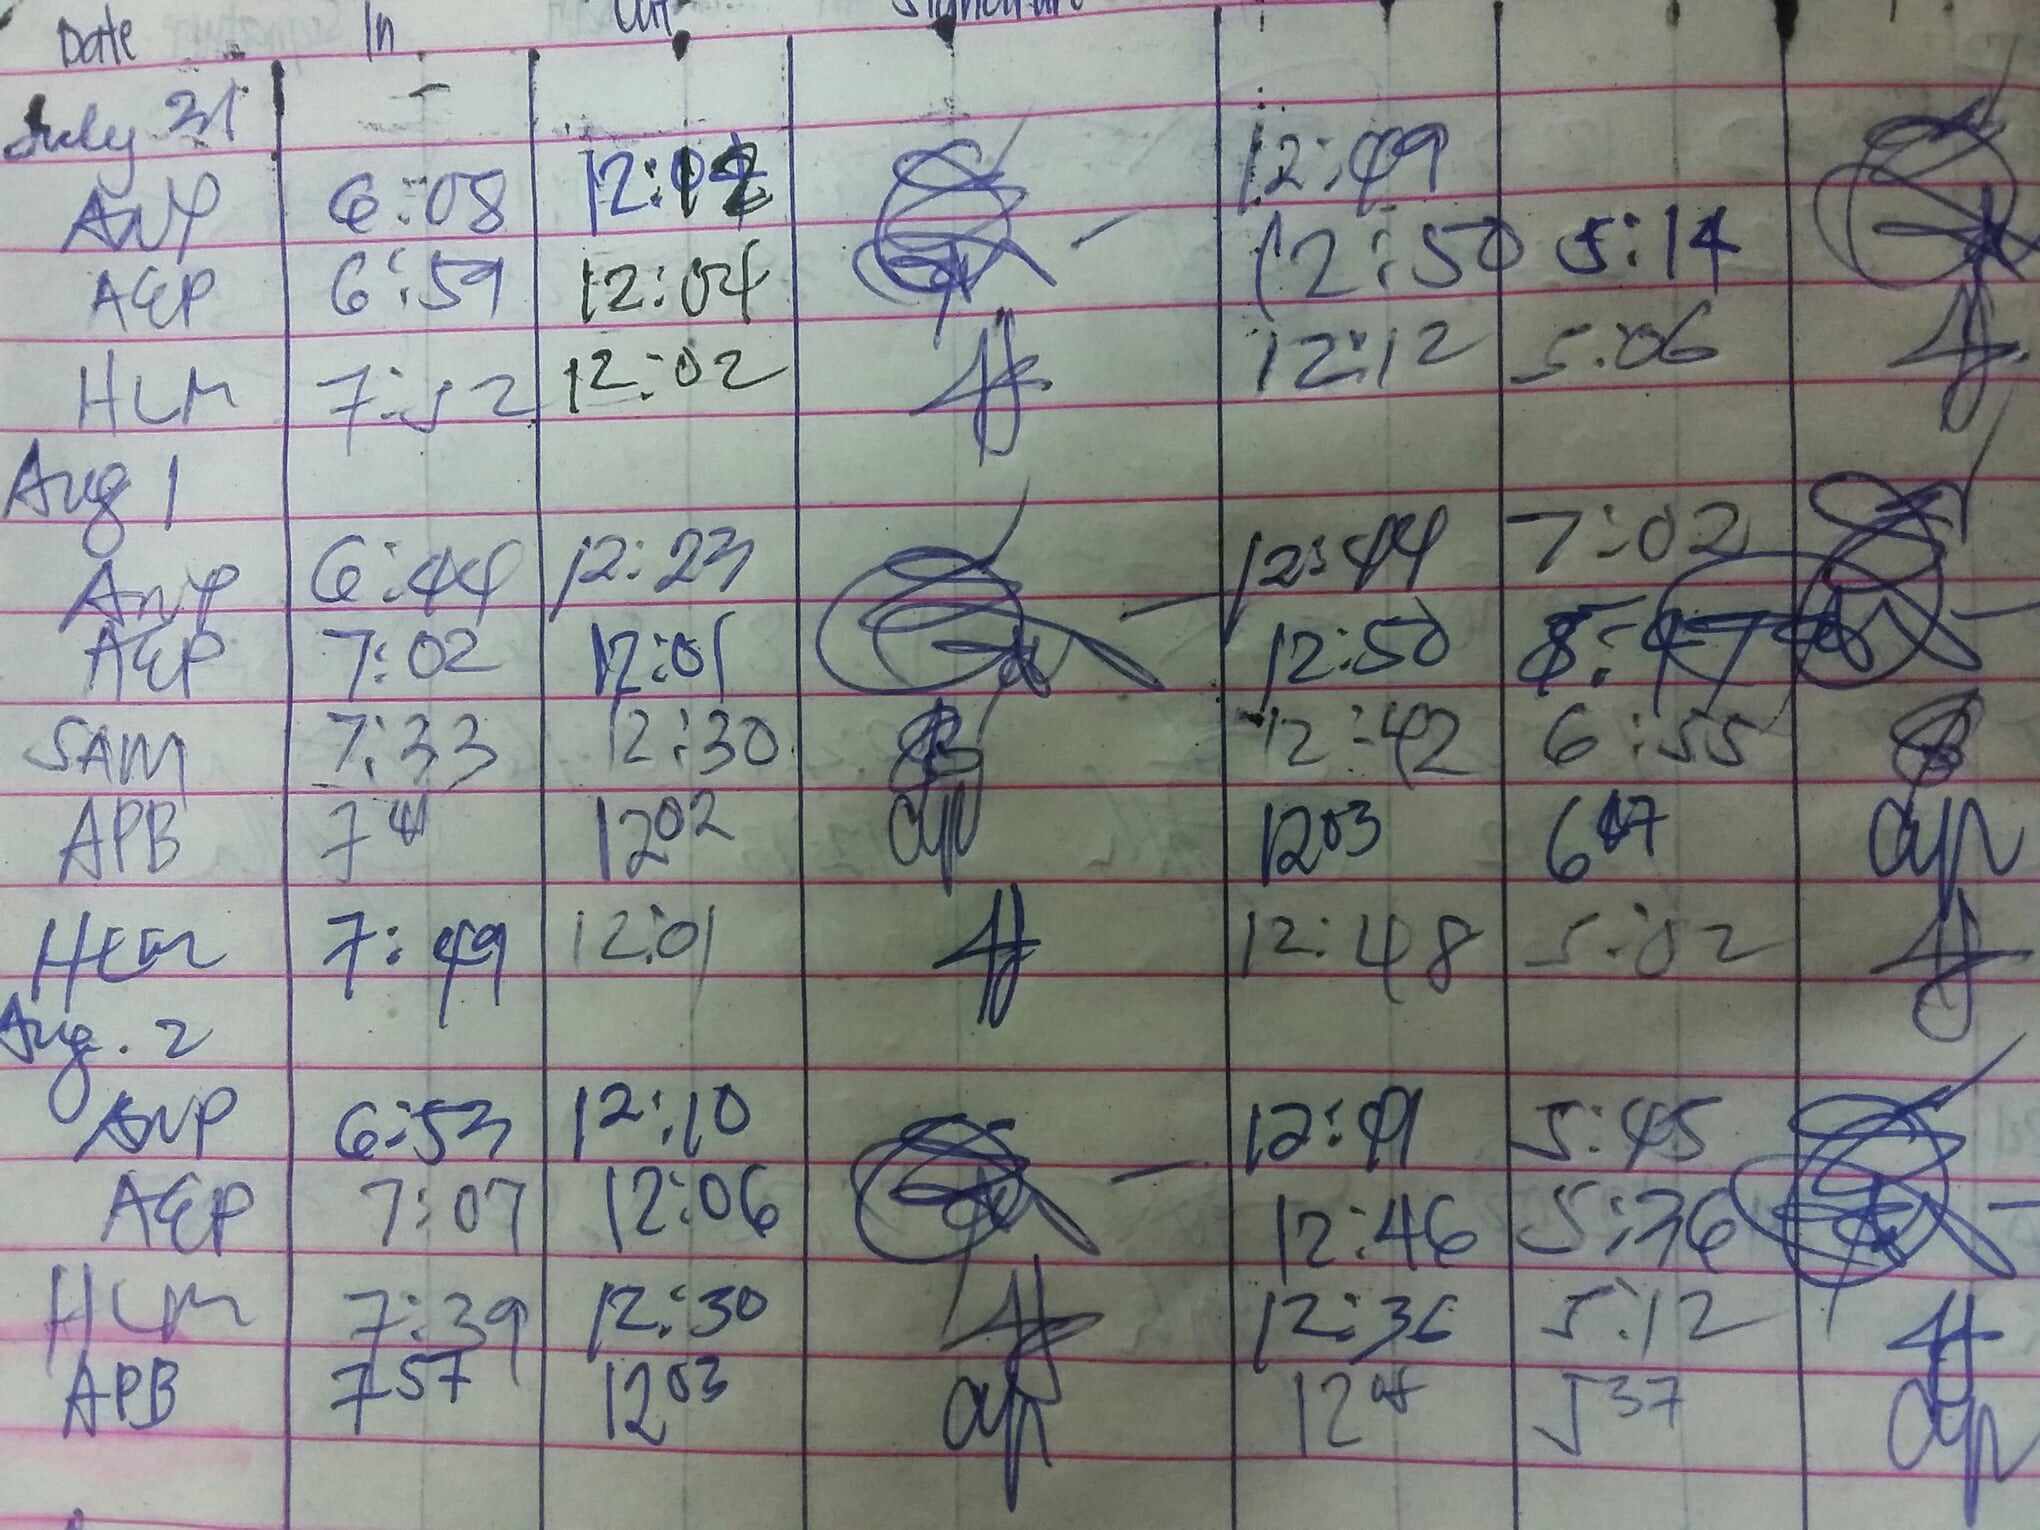 Date In Out Signature
July 31
ANP 6:08 12:12 12:49
AEP 6:59 12:04 12:50 5:14
HLM 7:52 12:02 12:12 5:06
Aug 1
ANP 6:44 12:23 12:44 7:02
AEP 7:02 12:01 12:50
SAM 7:33 12:30 12:42 6:55
APB 7 12 02 12 03 6 07
HLM 7:49 12:01 12:48 5:02
Aug. 2
ANP 6:53 12:10 12:41 5:45
AEP 7:07 12:06 12:46 5:36
HLM 7:39 12:30 12:36 5:12
APB 7 57 12 03 12 5 37